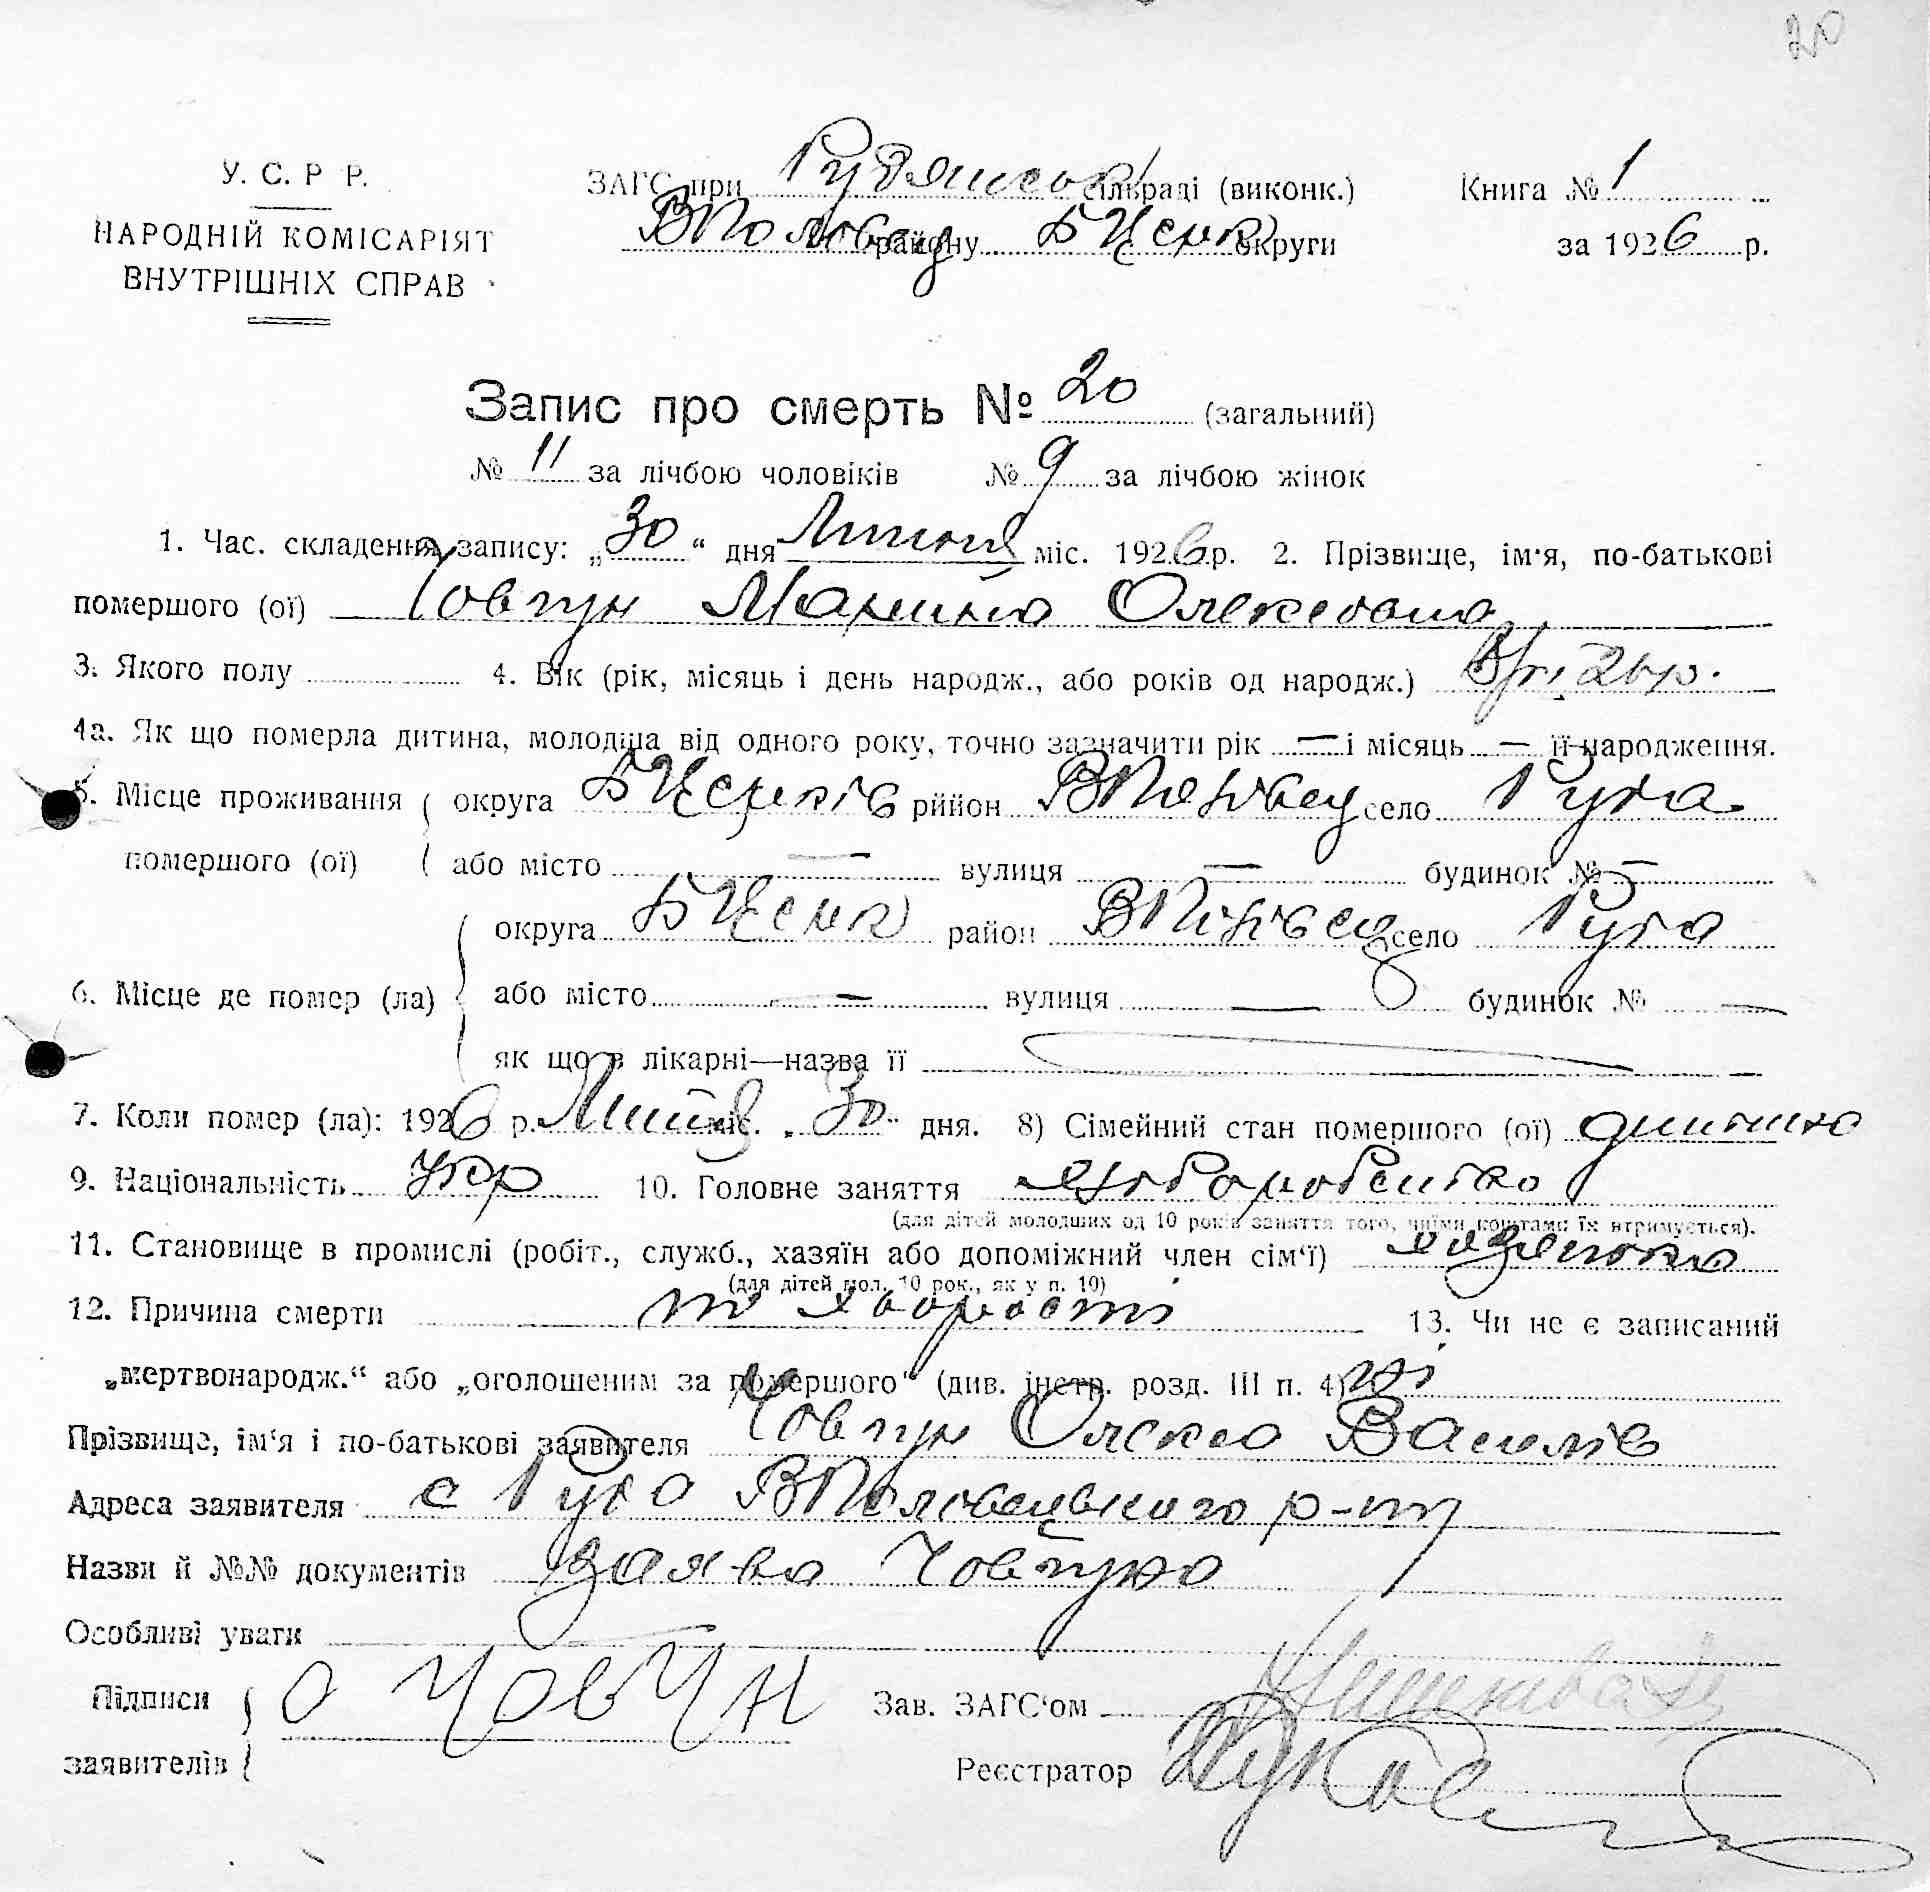 20
У. С. Р Р.
НАРОДНІЙ КОМІСАРІЯТ
ВНУТРІШНІХ СПРАВ
ЗАГС при Рудянськ сільраді (виконк.)
ВПоловец району БЦерк округи
Книга № 1
за 1926 р.
Запис про смерть № 20 (загальний)
№ 11 за лічбою чоловіків № 9 за лічбою жінок
1. Час. складення запису: „30“ дня Липня міс. 1926 р. 2. Прізвище, ім'я, по-батькові
помершого (ої) Човгун Олексовна
3. Якого полу 4. Вік (рік, місяць і день народж., або років од народж.)
4а. Як що померла дитина, молодша від одного року, точно зазначити рік — і місяць — її народження.
5. Місце проживання округа БЦерків рййон село Руда
помершого (ої) або місто — вулиця — будинок № —
округа БЦерк район село Руда
6. Місце де помер (ла) або місто — вулиця — будинок № —
як що в лікарні—назва її
7. Коли помер (ла): 1926 р. Липня міс. „30“ дня. 8) Сімейний стан помершого (ої) дитина
9. Національність Укр 10. Головне заняття
(для дітей молодших од 10 років заняття того, чиїми коштами їх втримується).
11. Становище в промислі (робіт., служб., хазяїн або допоміжний член сім'ї)
(для дітей мол. 10 рок., як у п. 10)
12. Причина смерти 13. Чи не є записаний
„мертвонародж.“ або „оголошеним за помершого“ (див. інстр. розд. III п. 4) ні
Прізвище, ім'я і по-батькові заявителя Човгун Олекса Василів
Адреса заявителя с Руда ВПоловецького р-ну
Назви й №№ документів заява Човгуна
Особливі уваги
Підписи О ЧОВЧН Зав. ЗАГС'ом
заявителів Реєстратор